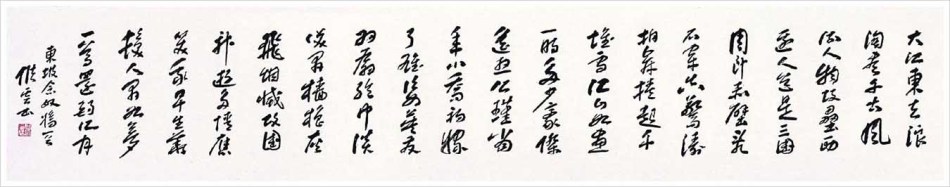 大江東去浪
淘盡千古風
流人物故壘西
邊人道是三國
周郎赤壁亂
石穿空驚濤
拍岸捲起千
堆雪江山如畫
一時多少豪傑
遙想公瑾當
年小喬初嫁
了雄姿英發
羽扇綸巾談
笑間檣櫓灰
飛煙滅故國
神遊多情應
笑我早生華
髮人間如夢
一尊還酹江月
東坡念奴嬌
書